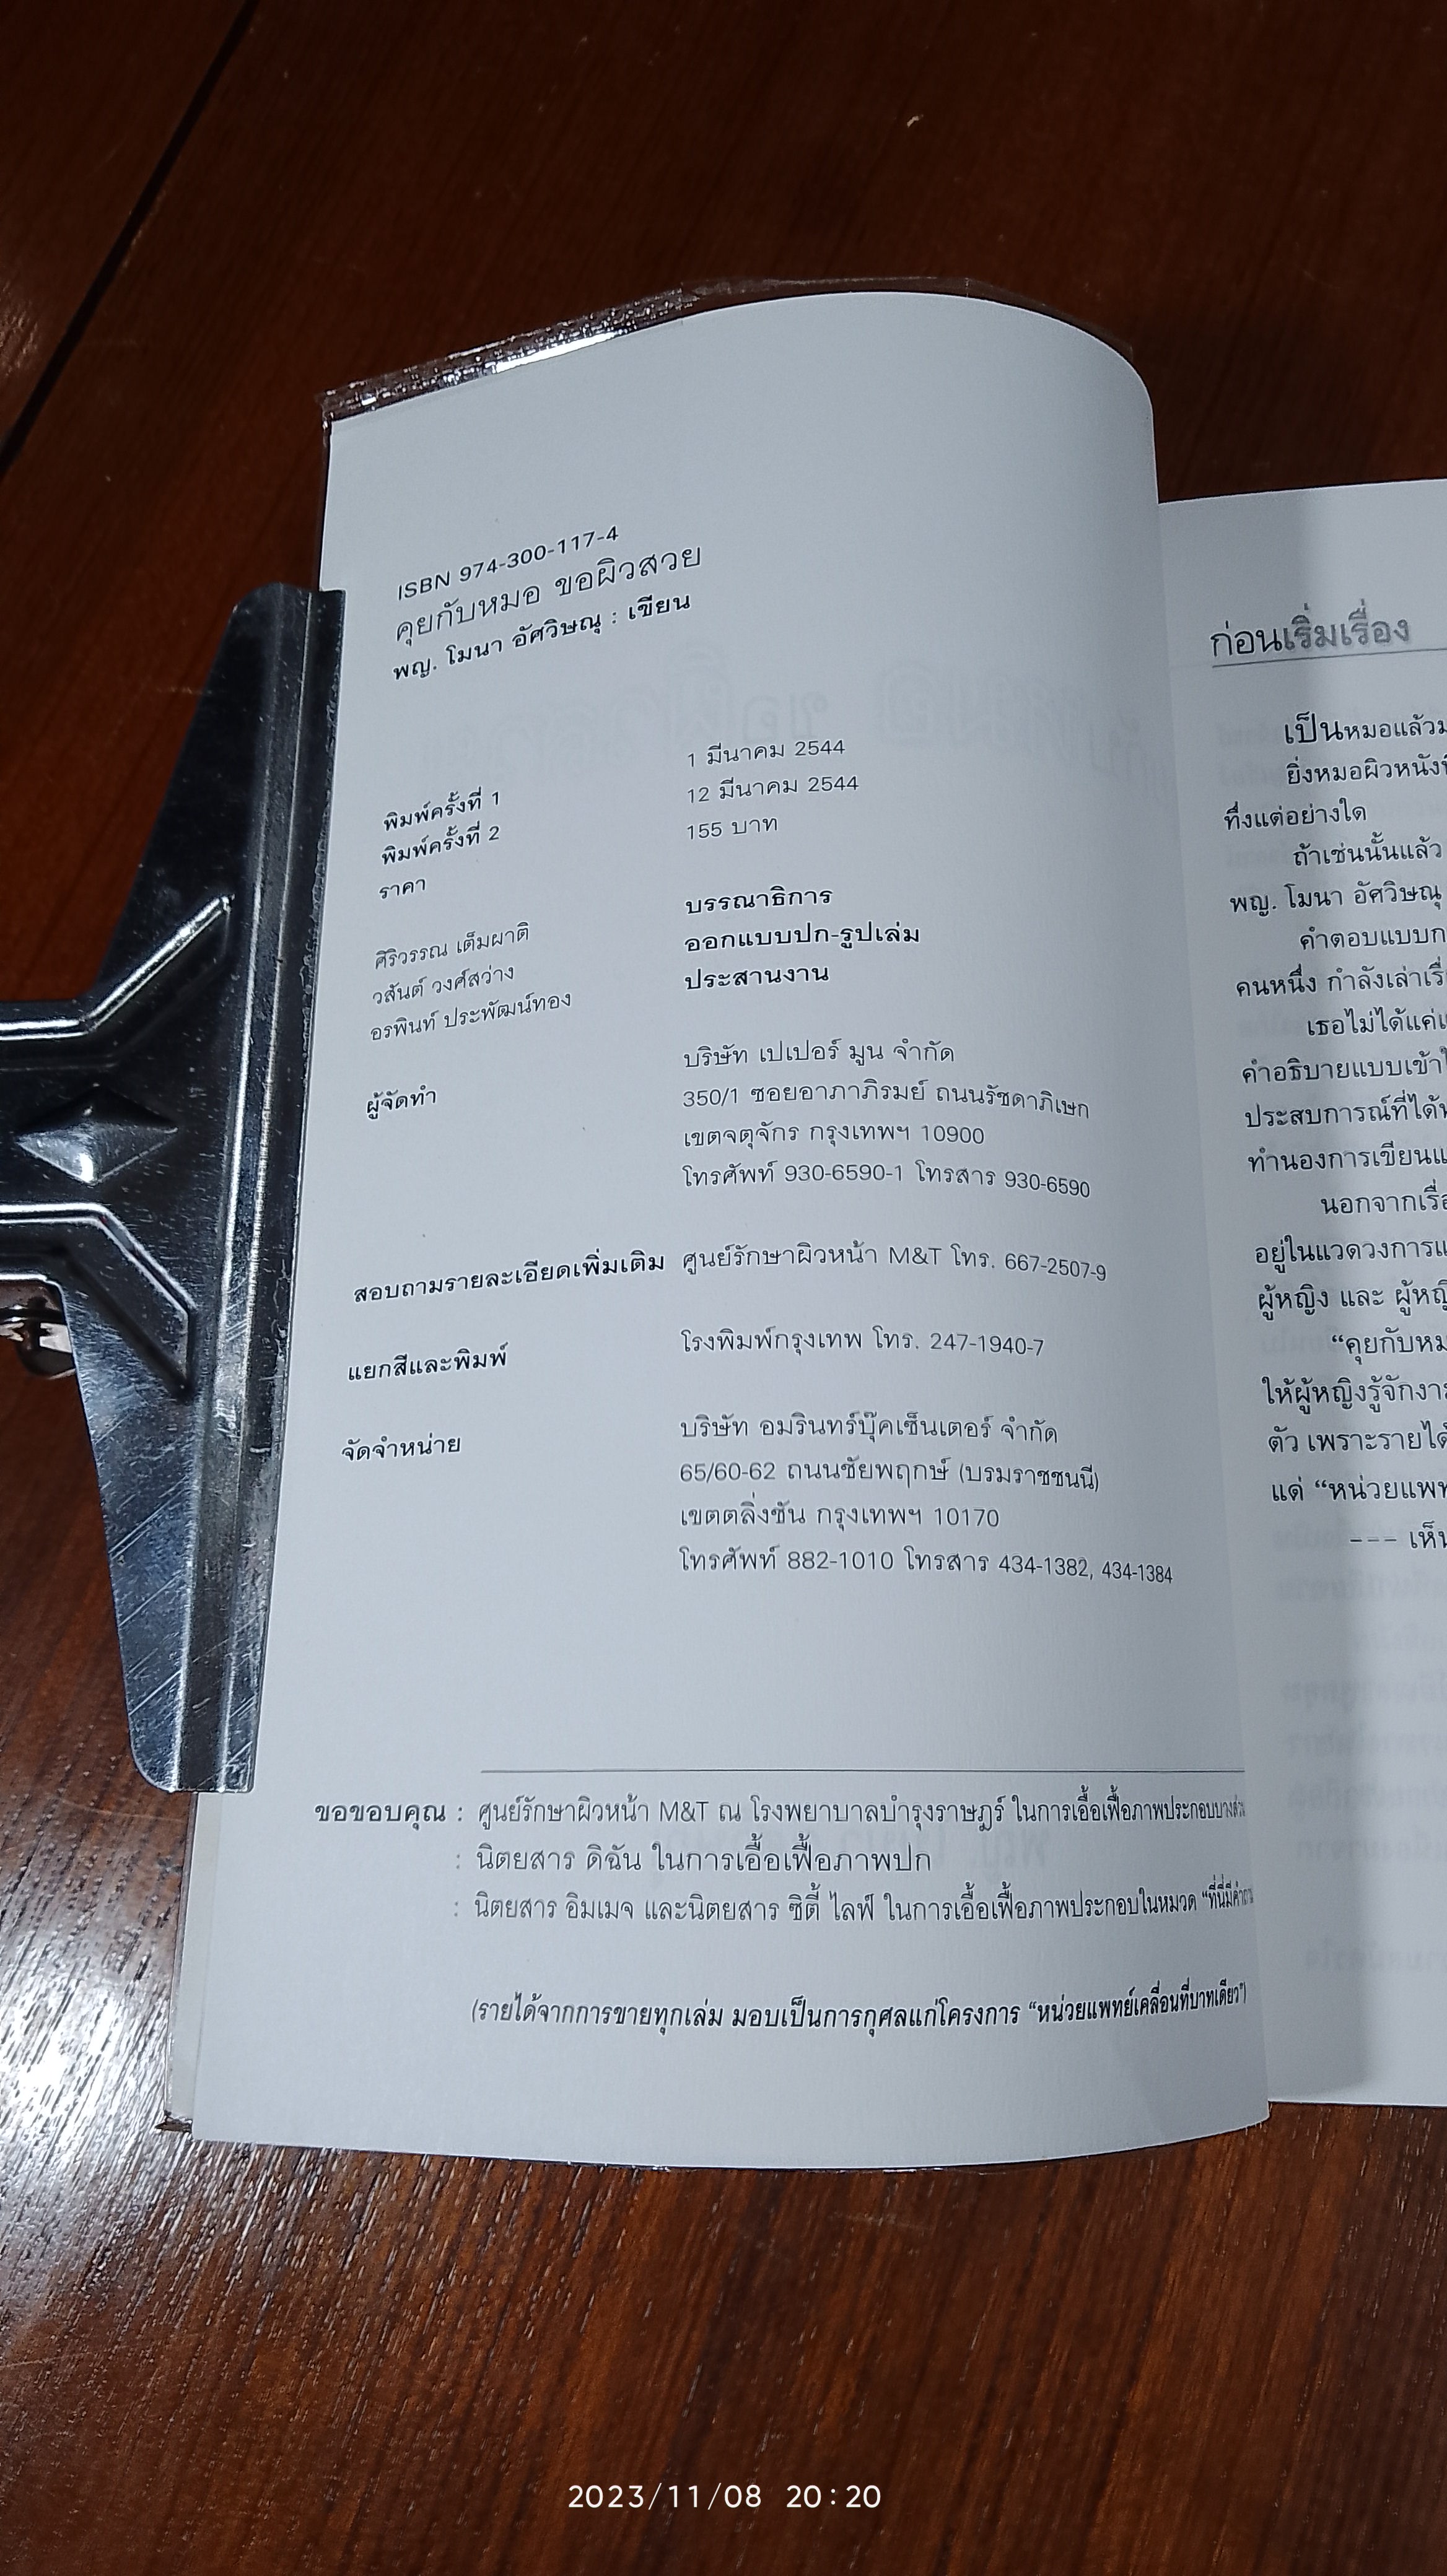 ISBN 974-300-117-4
คุยกับหมอ ขอผิวสวย
พญ. โมนา อัศวิษณุ : เขียน
พิมพ์ครั้งที่ 1 1 มีนาคม 2544
พิมพ์ครั้งที่ 2 12 มีนาคม 2544
ราคา 155 บาท
ศิริวรรณ เต็มผาติ บรรณาธิการ
วสันต์ วงศ์สว่าง ออกแบบปก-รูปเล่ม
อรพินท์ ประพัฒน์ทอง ประสานงาน
ผู้จัดทำ บริษัท เปเปอร์ มูน จำกัด
350/1 ซอยอาภาภิรมย์ ถนนรัชดาภิเษก
เขตจตุจักร กรุงเทพฯ 10900
โทรศัพท์ 930-6590-1 โทรสาร 930-6590
สอบถามรายละเอียดเพิ่มเติม ศูนย์รักษาผิวหน้า M&T โทร. 667-2507-9
แยกสีและพิมพ์ โรงพิมพ์กรุงเทพ โทร. 247-1940-7
จัดจำหน่าย บริษัท อมรินทร์บุ๊คเซ็นเตอร์ จำกัด
65/60-62 ถนนชัยพฤกษ์ (บรมราชชนนี)
เขตตลิ่งชัน กรุงเทพฯ 10170
โทรศัพท์ 882-1010 โทรสาร 434-1382, 434-1384
ขอขอบคุณ : ศูนย์รักษาผิวหน้า M&T ณ โรงพยาบาลบำรุงราษฎร์ ในการเอื้อเฟื้อภาพประกอบบางส่วน
: นิตยสาร ดิฉัน ในการเอื้อเฟื้อภาพปก
: นิตยสาร อิมเมจ และนิตยสาร ซิตี้ ไลฟ์ ในการเอื้อเฟื้อภาพประกอบในหมวด "ที่นี่มีคำ
(รายได้จากการขายทุกเล่ม มอบเป็นการกุศลแก่โครงการ "หน่วยแพทย์เคลื่อนที่บาทเดียว")
ก่อนเริ่มเรื่อง
เป็นหมอแล้ว
ยิ่งหมอผิวหนัง
ทึ่งแต่อย่างใด
ถ้าเช่นนั้นแล้ว
พญ. โมนา อัศวิษณุ
คำตอบแบบ
คนหนึ่ง กำลังเล่า
เธอไม่ได้แค่
คำอธิบายแบบเข้า
ประสบการณ์ที่ได้
ทำนองการเขียน
นอกจาก
อยู่ในแวดวงการ
ผู้หญิง และ
"คุยกับ
ให้ผู้หญิงรู้จัก
ตัว เพราะราย
แด่ "หน่วย
--- 
2023/11/08 20:20